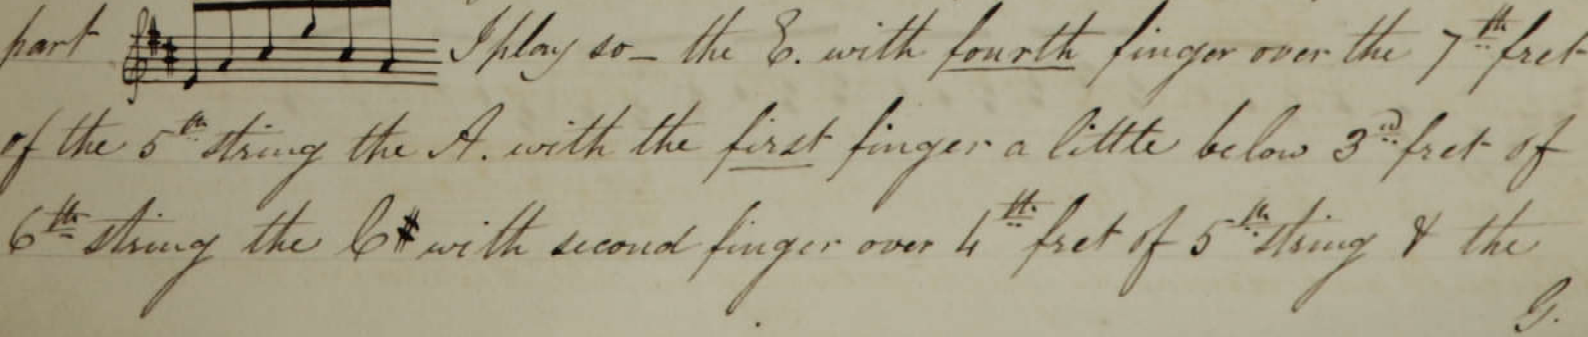 part I play so – the E. with fourth finger over the 7th fret
of the 5th string the A. with the first finger a little below 3rd fret of
6th string the C# with second finger over 4th fret of 5th string & the
G.